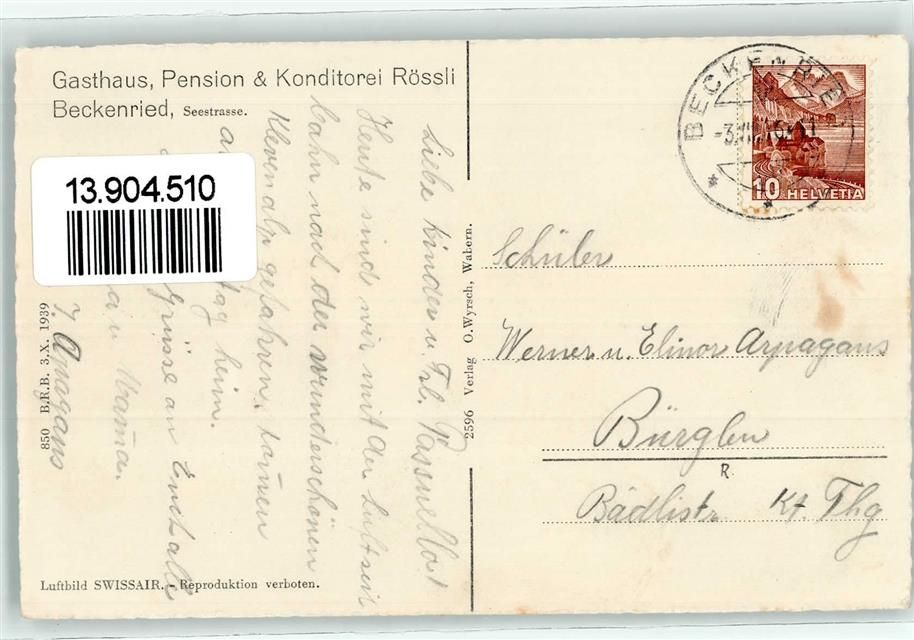 Gasthaus, Pension & Konditorei Rössli
Beckenried, Seestrasse.
13.904.510
Liebe Kinder u. Frl.
Heute sind wir mit der Luftseil
bahn nach der wunderschönen
Klewenalp gefahren. kommen
tag heim.
Grüsse an Euch alle
u. Mama.
J. Arpagaus
850 B.R.B. 3.X. 1939
2596 Verlag O.Wyrsch, Wabern.
Luftbild SWISSAIR. - Reproduktion verboten.
BECKENRIED
10 HELVETIA
Schüler
Werner u. Elinor Arpagaus
Bürglen
R.
Bädlistr. Kt. Thg